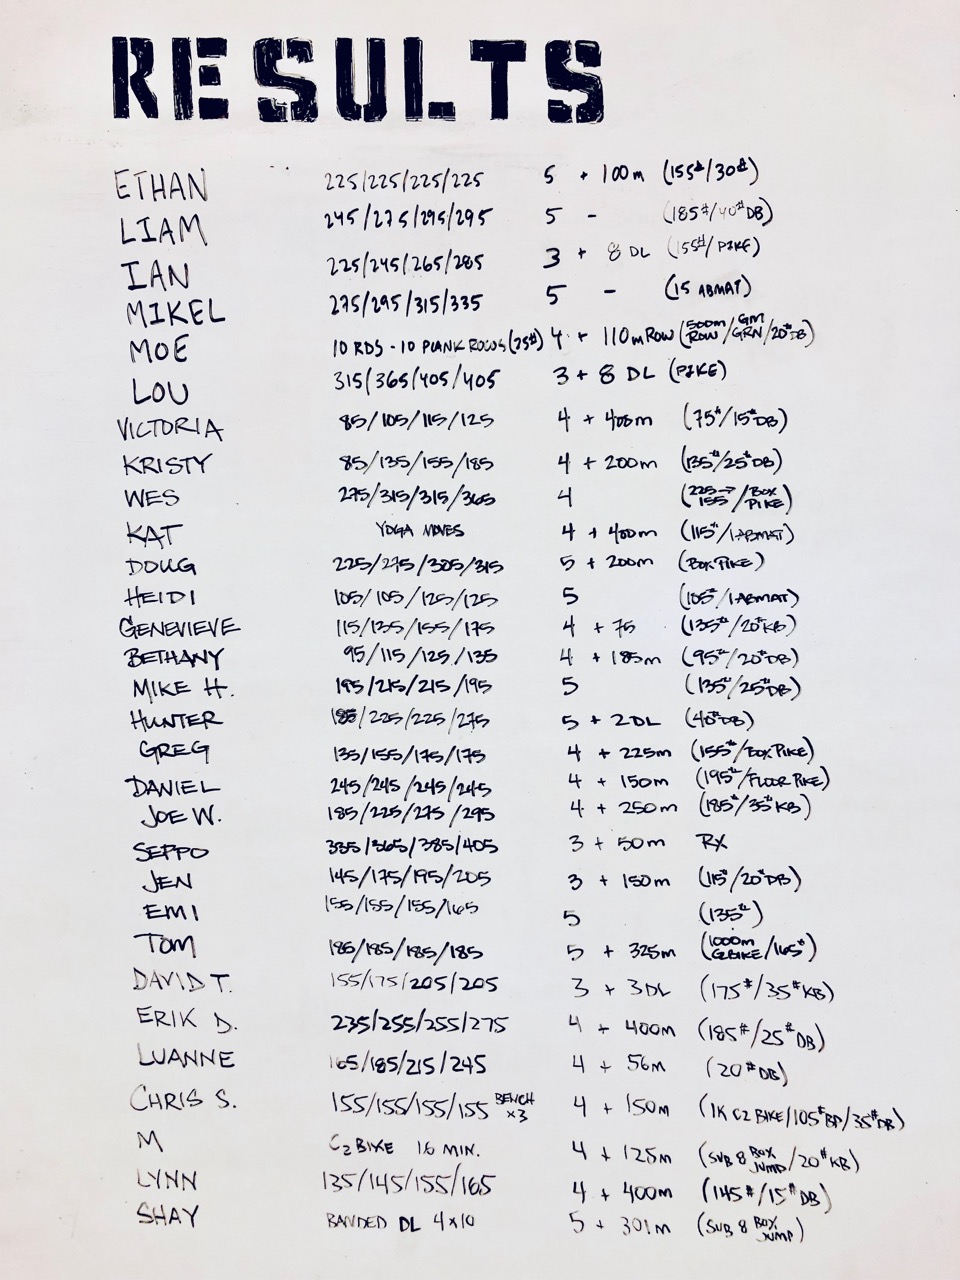 RESULTS
ETHAN 225/225/225/225 5 + 100m (155#/30#)
LIAM 245/275/295/295 5 - (185#/40#DB)
IAN 225/245/265/285 3 + 8 DL (155#/PIKE)
MIKEL 275/295/315/335 5 - (15 ABMAT)
MOE 10 RDS - 10 PLANK ROWS (25#) 4 + 110m ROW (500m ROW/GM GRN/20#DB)
LOU 315/365/405/405 3 + 8 DL (PIKE)
VICTORIA 85/105/115/125 4 + 400m (75#/15#DB)
KRISTY 85/135/155/185 4 + 200m (135#/25#DB)
WES 275/315/315/365 4 (225→155/BOX PIKE)
KAT YOGA MOVES 4 + 400m (115#/1ABMAT)
DOUG 225/275/305/315 5 + 200m (BOX PIKE)
HEIDI 105/105/125/125 5 (105#/1ABMAT)
GENEVIEVE 115/135/155/175 4 + 75 (135#/20#KB)
BETHANY 95/115/125/135 4 + 185m (95#/20#DB)
MIKE H. 195/215/215/195 5 (135#/25#DB)
HUNTER 185/225/225/275 5 + 2DL (40#DB)
GREG 135/155/175/175 4 + 225m (155#/BOX PIKE)
DANIEL 245/245/245/245 4 + 150m (195#/FLOOR PIKE)
JOE W. 185/225/275/295 4 + 250m (185#/35#KB)
SEPPO 335/365/385/405 3 + 50m RX
JEN 145/175/195/205 3 + 150m (115#/20#DB)
EMI 155/155/155/165 5 (135#)
TOM 185/185/185/185 5 + 325m (1000m C2BIKE/165#)
DAVID T. 155/175/205/205 3 + 3DL (175#/35#KB)
ERIK D. 235/255/255/275 4 + 400m (185#/25#DB)
LUANNE 165/185/215/245 4 + 56m (20#DB)
CHRIS S. 155/155/155/155 BENCH x3 4 + 150m (1K C2 BIKE/105#BP/35#DB)
M C2 BIKE 16 MIN. 4 + 125m (SUB 8 BOX JUMP/20#KB)
LYNN 135/145/155/165 4 + 400m (145#/15#DB)
SHAY BANDED DL 4x10 5 + 301m (SUB 8 BOX JUMP)